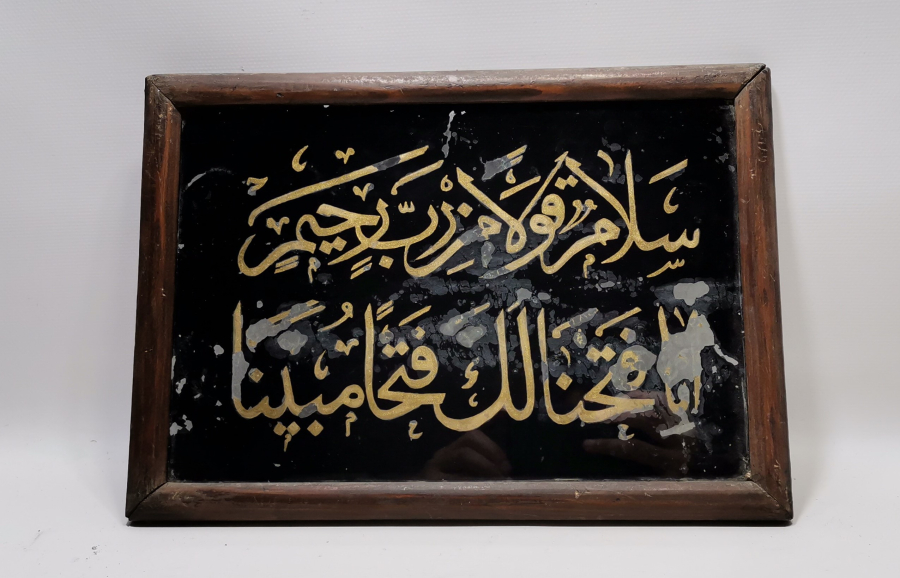 سَلَامٌ قَوْلًا مِنْ رَبٍّ رَحِيمٍ
إنا فَتَحْنَا لَكَ فَتْحًا مُبِينًا